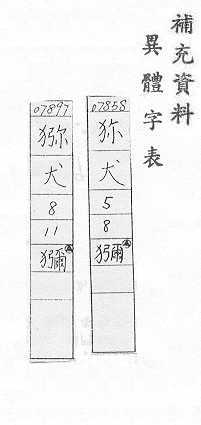 補充資料
異體字表
07858
狝
犬
5
8
獮
07897
猕
犬
8
11
獼